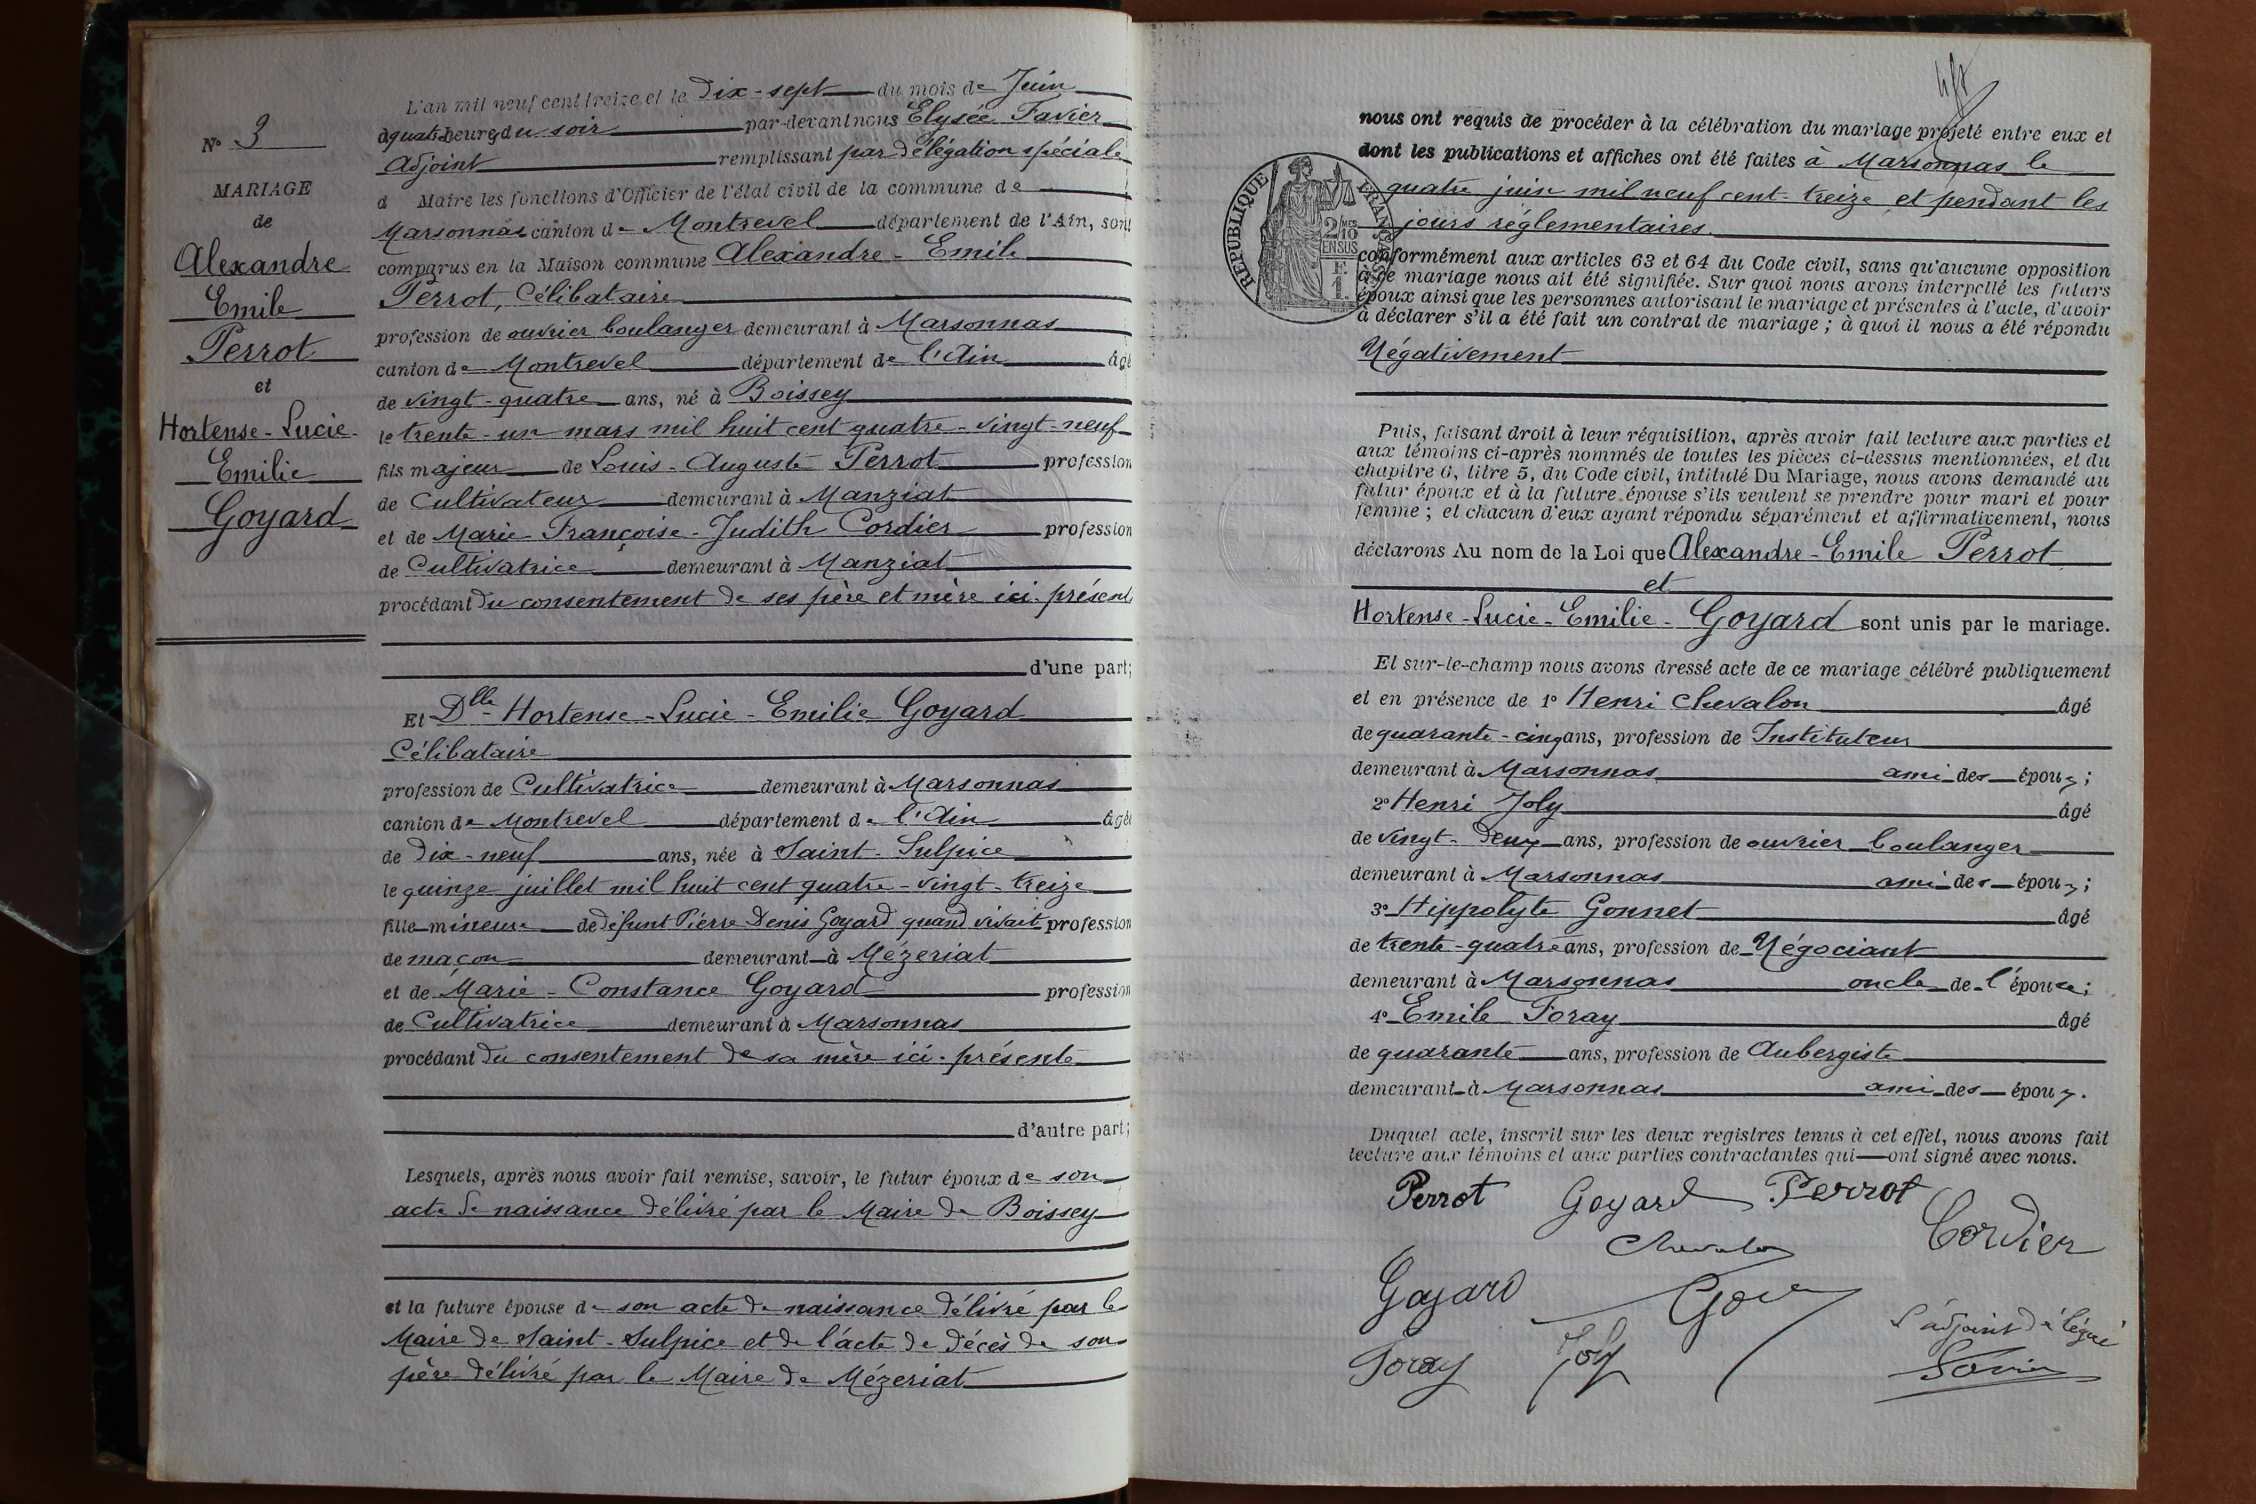 N° 3
MARIAGE
de
Alexandre
Emile
Perrot
et
Hortense-Lucie-
Emilie
Goyard
L'an mil neuf cent treize et le Dix-sept du mois de Juin
à quatre heures du soir par-devant nous Elysée Favier
Adjoint remplissant par délégation spéciale
d Maire les fonctions d'Officier de l'état civil de la commune de
Marsonnas canton de Montrevel département de l'Ain, sont
comparus en la Maison commune Alexandre-Emile
Perrot, Célibataire
profession de ouvrier boulanger demeurant à Marsonnas
canton de Montrevel département de l'Ain âgé
de vingt-quatre ans, né à Boissey
le trente-un mars mil huit cent quatre-vingt-neuf
fils majeur de Louis-Auguste Perrot profession
de Cultivateur demeurant à Manziat
et de Marie-Françoise-Judith Cordier profession
de Cultivatrice demeurant à Manziat
procédant du consentement de ses père et mère ici-présents
d'une part;
Et Dlle Hortense-Lucie-Emilie Goyard
Célibataire
profession de Cultivatrice demeurant à Marsonnas
canton de Montrevel département de l'Ain âgée
de Dix-neuf ans, née à Saint-Sulpice
le quinze juillet mil huit cent quatre-vingt-treize
fille mineure de défunt Pierre Denis Goyard quand vivait profession
de maçon demeurant à Mézeriat
et de Marie-Constance Goyard profession
de Cultivatrice demeurant à Marsonnas
procédant du consentement de sa mère ici-présente
d'autre part;
Lesquels, après nous avoir fait remise, savoir, le futur époux de son
acte de naissance délivré par le Maire de Boissey
et la future épouse de son acte de naissance délivré par le
Maire de Saint-Sulpice et de l'acte de décès de son
père délivré par le Maire de Mézeriat
nous ont requis de procéder à la célébration du mariage projeté entre eux et
dont les publications et affiches ont été faites à Marsonnas le
quatre juin mil neuf cent-treize et pendant les
jours réglementaires.
RÉPUBLIQUE FRANÇAISE
2/10mes
EN SUS
F.
1.
conformément aux articles 63 et 64 du Code civil, sans qu'aucune opposition
à ce mariage nous ait été signifiée. Sur quoi nous avons interpellé les futurs
époux ainsi que les personnes autorisant le mariage et présentes à l'acte, d'avoir
à déclarer s'il a été fait un contrat de mariage; à quoi il nous a été répondu
Négativement
Puis, faisant droit à leur réquisition, après avoir fait lecture aux parties et
aux témoins ci-après nommés de toutes les pièces ci-dessus mentionnées, et du
chapitre 6, titre 5, du Code civil, intitulé Du Mariage, nous avons demandé au
futur époux et à la future épouse s'ils veulent se prendre pour mari et pour
femme; et chacun d'eux ayant répondu séparément et affirmativement, nous
déclarons Au nom de la Loi que Alexandre-Emile Perrot
et
Hortense-Lucie-Emilie-Goyard sont unis par le mariage.
Et sur-le-champ nous avons dressé acte de ce mariage célébré publiquement
et en présence de 1° Henri Chevalon âgé
de quarante-cinq ans, profession de Instituteur
demeurant à Marsonnas ami des époux;
2° Henri Joly âgé
de vingt-deux ans, profession de ouvrier boulanger
demeurant à Marsonnas ami des époux;
3° Hippolyte Gonnet âgé
de trente-quatre ans, profession de Négociant
demeurant à Marsonnas oncle de l'épouse;
4° Emile Foray âgé
de quarante ans, profession de Aubergiste
demeurant à Marsonnas ami des époux.
Duquel acte, inscrit sur les deux registres tenus à cet effet, nous avons fait
lecture aux témoins et aux parties contractantes qui ont signé avec nous.
Perrot Goyard Perrot
Chevalon Cordier
Goyard
L'adjoint délégué
Foray Joly Favier